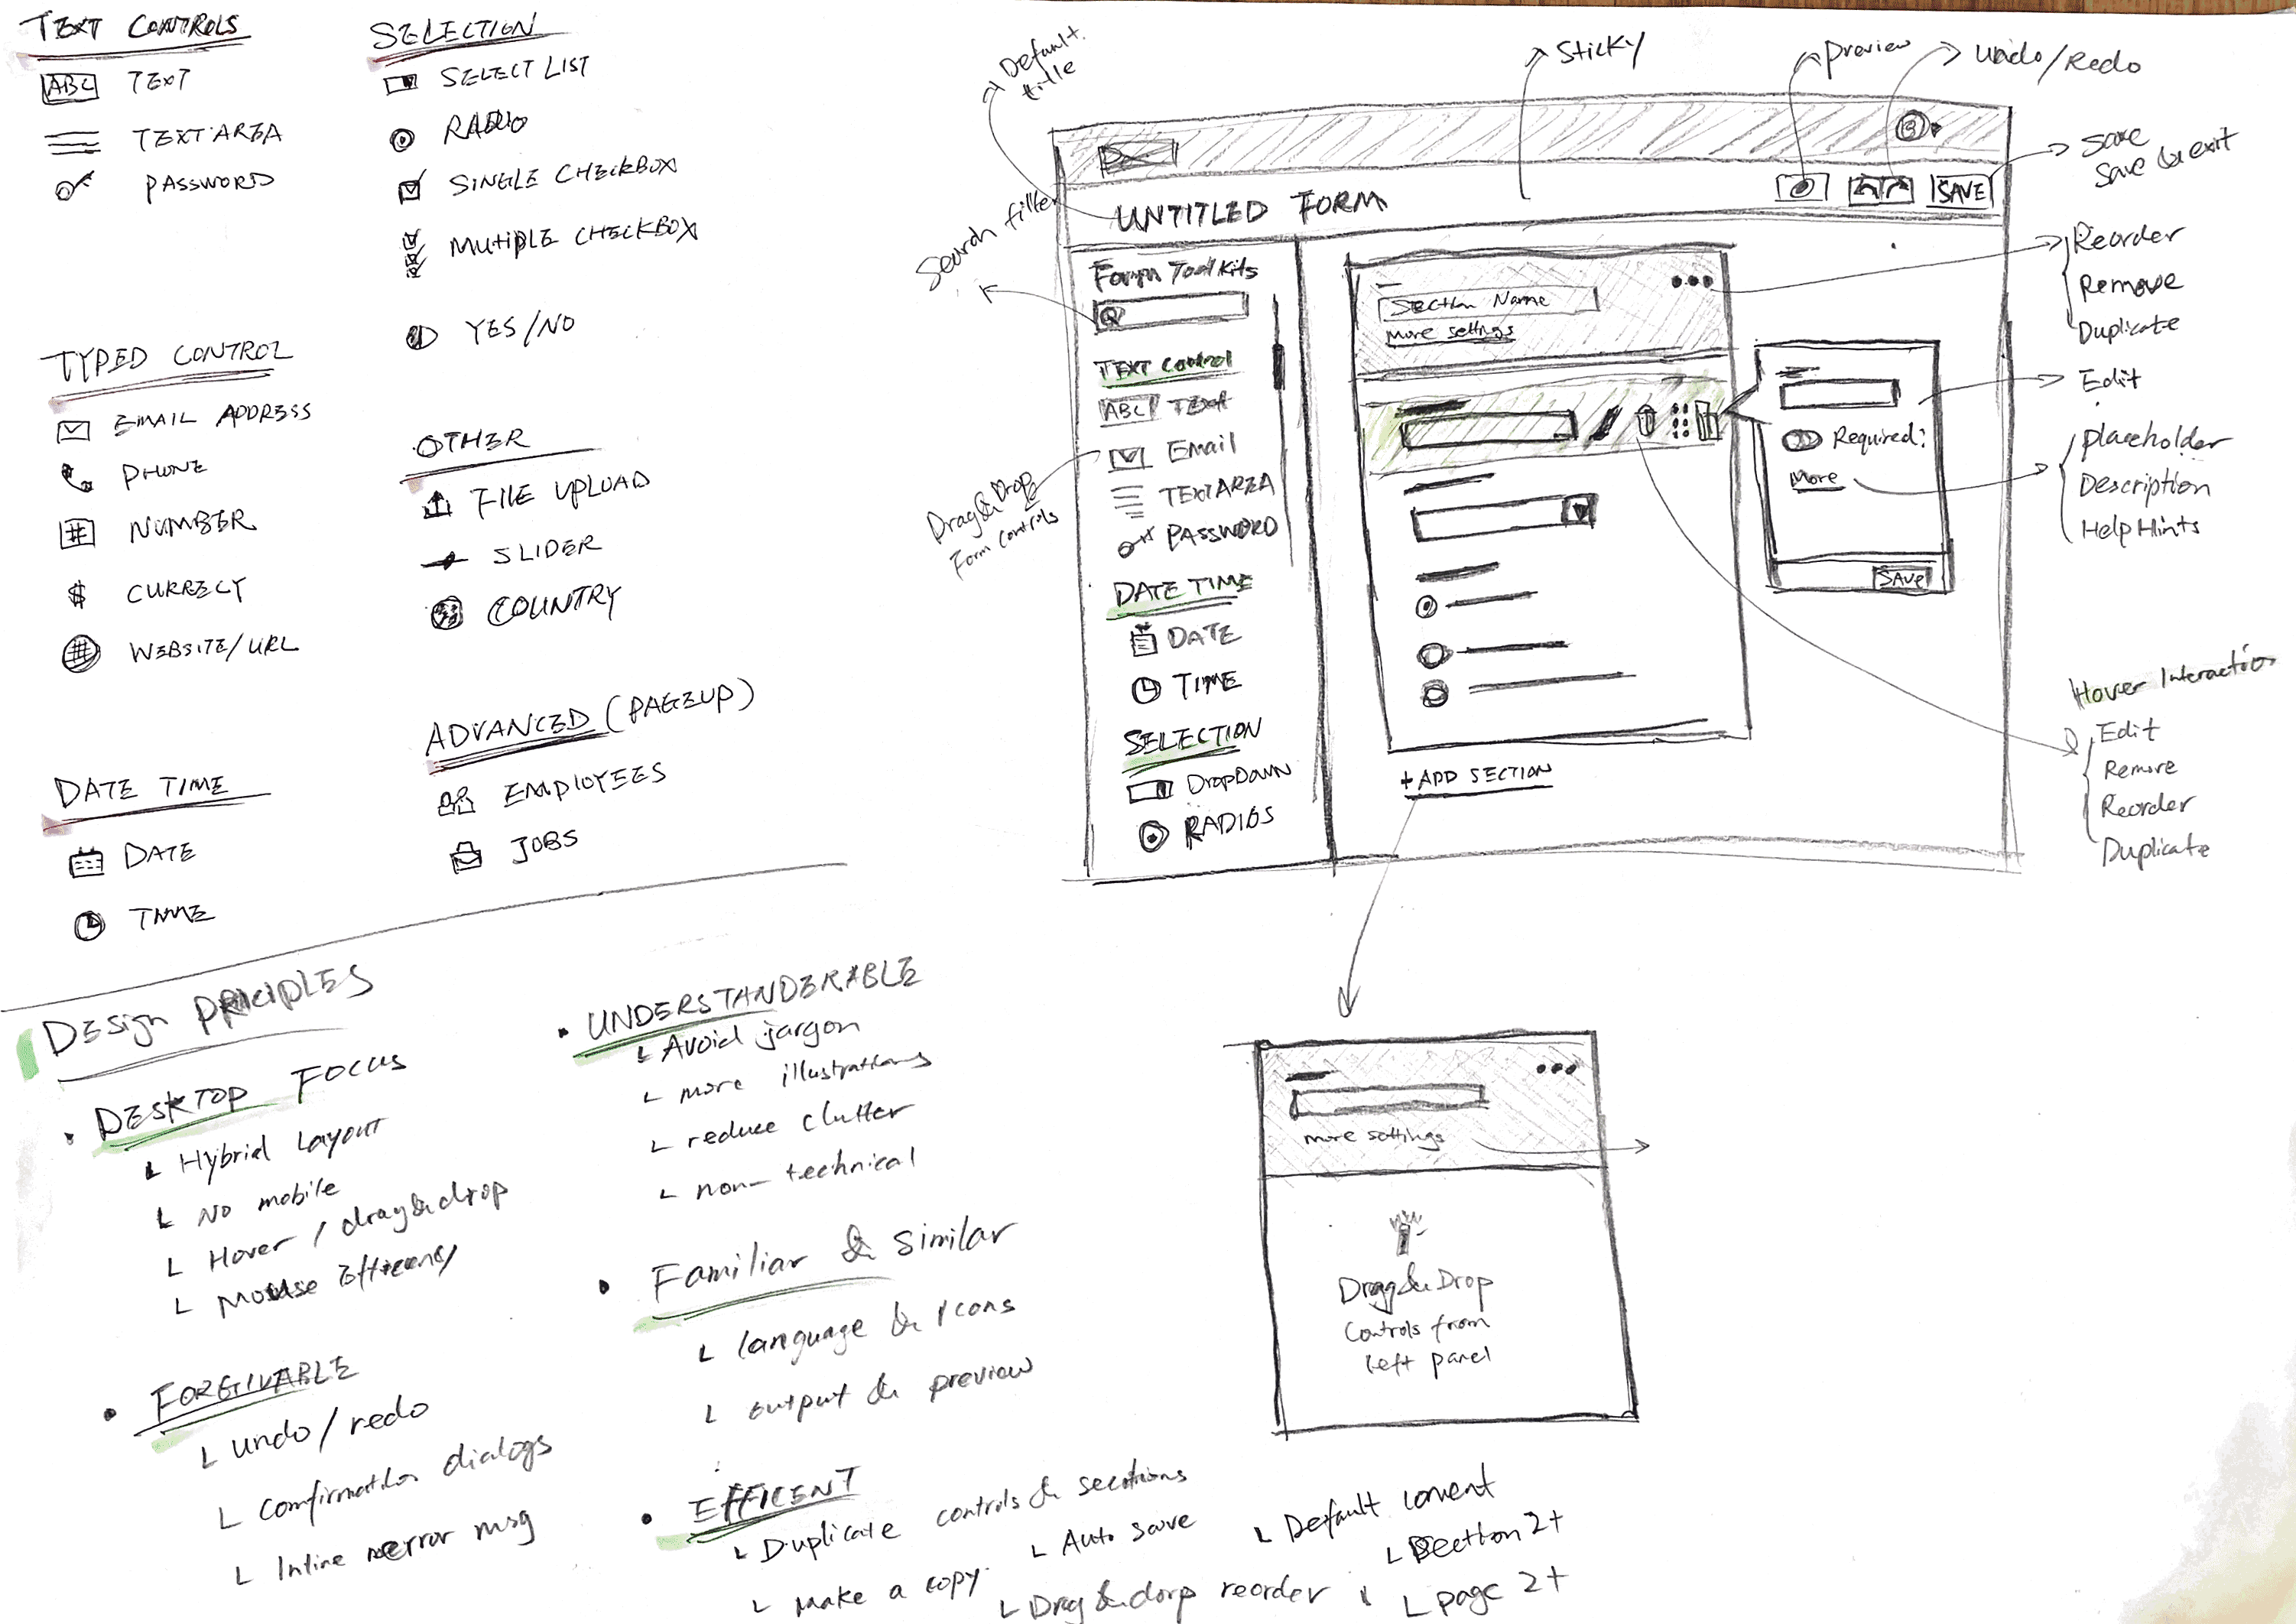 TEXT CONTROLS
ABC TEXT
TEXT AREA
PASSWORD
SELECTION
SELECT LIST
RADIO
SINGLE CHECKBOX
MUTIPLE CHECKBOX
YES/NO
TYPED CONTROL
EMAIL ADDRESS
PHONE
# NUMBER
$ CURRECY
# WEBSITE/URL
OTHER
FILE UPLOAD
SLIDER
COUNTRY
DATE TIME
DATE
TIME
ADVANCED (PAGEUP)
EMPLOYEES
JOBS
Default
title
Sticky
preview
Undo/Redo
Save
Save & exit
UNTITLED FORM
SAVE
Search filter
Form Toolkits
TEXT Control
ABC TEXT
Email
TEXTAREA
PASSWORD
Drag & Drop
Form controls
DATE TIME
DATE
TIME
SELECTION
DropDown
RADIOS
Section Name
More settings
Reorder
Remove
Duplicate
Edit
Required?
More
SAVE
placeholder
Description
Help Hints
Hover Interaction
Edit
Remove
Reorder
Duplicate
+ ADD SECTION
more settings
Drag & Drop
Controls from
left panel
Design PRICIPLES
• DESKTOP FOCUS
Hybrid Layout
No mobile
Hover / drag & drop
Mouse
• FORGIVABLE
undo/redo
Confirmation dialogs
Inline error msg
• UNDERSTANDERABLE
Avoid jargon
more illustrations
reduce clutter
non-technical
• Familiar & similar
language & Icons
output & preview
• EFFICENT
Duplicate controls & sections
Make a copy
Auto save
Drag & dorp reorder
Default
Section 2+
page 2+